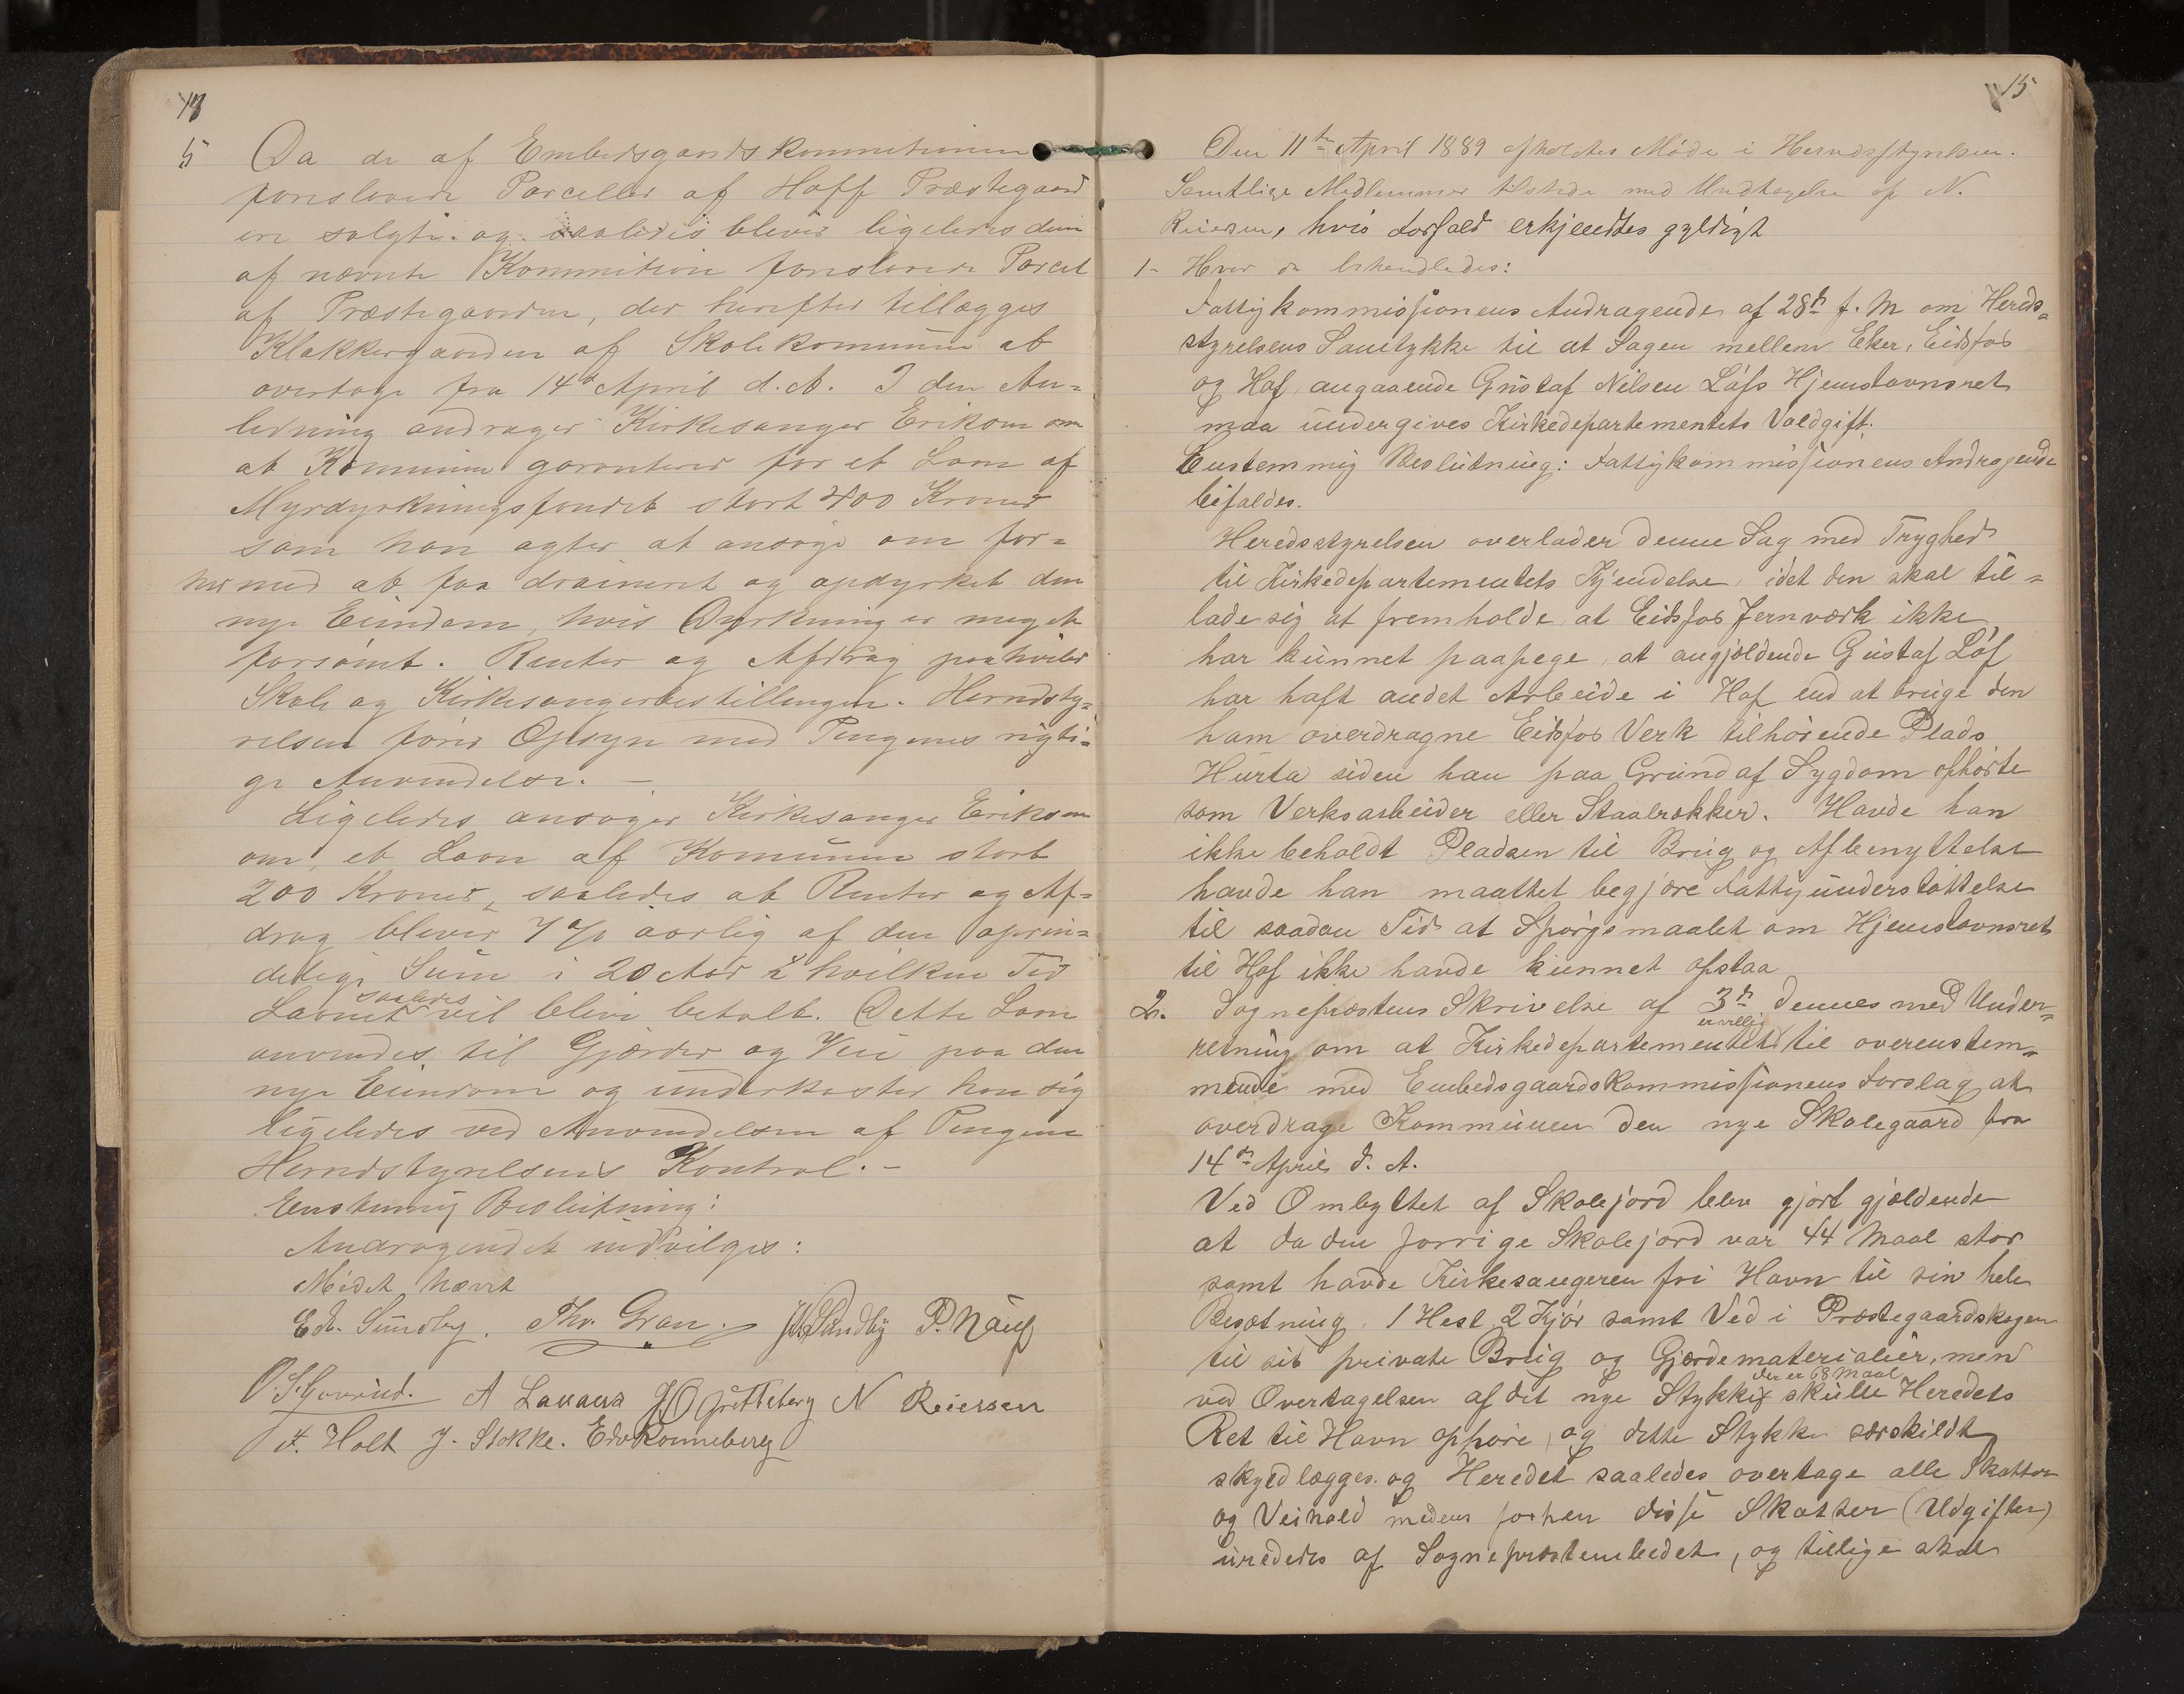 14
5 Da de af Embedsgaardskommitionen
foreslaaede Parceller af Hoff Præstegaard
ere solgte og saaledes bliver ligeledes den
af nævnte Kommition foreslaaede Parcel
af Præstegaarden, der herefter tillægges
Klokkergaarden af Skolekommunen at
overtage fra 14de April d. A. I den An=
ledning andrager Kirkesanger Erikson om
at Kommunen garanterer for et Laan af
Myrdyrkningsfondet stort 400 Kroner
som han agter at ansøge om for=
hermed at faa draineret og opdyrket den
nye Eiendom, hvis Dyrkning er meget
forsømt. Renter og Afdrag paahviler
Skole og Kirkesangerbestillingen. Herredsty=
relsen fører Opsyn med Pengenes rigti=
ge Anvendelse. —
Ligeledes ansøger Kirkesanger Erikson
om et Laan af Kommunen stort
200 Kroner, saaledes at Renter og Af=
drag bliver 7 % aarlig af den oprin=
delige Sum i 20 Aar i hvilken Tid
Laanet saaledes vil blive betalt. Dette Laan
anvendes til Gjærder og Veie paa den
nye Eiendom og underkaster han sig
ligeledes ved Anvendelsen af Pengene
Herredstyrelsens Kontrol. —
Enstemmig Beslutning:
Andragendet indvilges:
Mødet hævet
Edv. Sundby. Thv. Gran. P. Nauf
O. S. Gunrud. A Lanans J O Gretteberg N Reiersen
F. Holt J. Stokke. Edv Ronneberg
15
Den 11te April 1889 afholdtes Møde i Herredsstyrelsen.
Samtlige Medlemmer tilstede med Undtagelse af N.
Reiersen, hvis Forfald erkjendtes gyldigt
1- Hvor da behandledes:
Fattigkommissionens Andragende af 28de f. M om Hereds=
styrelsens Samtykke til at Sagen mellem Eker, Eidsfos
og Hof angaaende Gustaf Nilsen Løfs Hjemstavnsret
maa undergives Kirkedepartementets Voldgift.
Enstemmig Beslutning: Fattigkommissionens Andragende
bifaldes.
Heredsstyrelsen overlader denne Sag med Tryghed
til Kirkedepartementets Kjendelse, idet den skal til=
lade sig at fremholde at Eidsfos Jernværk ikke
har kunnet paapege, at angjældende Gustaf Løf
har haft andet Arbeide i Hof end at bruge den
ham overdragne Eidsfos Verk tilhørende Plads
Hurta siden han paa Grund af Sygdom ophørte
som Verksarbeider eller Staalrækker. Havde han
ikke beholdt Pladsen til Brug og Afbenyttelse
havde han maattet begjære Fattigunderstøttelse
til saadan Tid at Spørgsmaalet om Hjemstavnsret
til Hof ikke havde kunnet opstaa
2. Sogneprestens Skrivelse af 3de dennes med Under=
retning om at Kirkedepartementet er villig til overenstem=
mende med Embedsgaardskommissionens Forslag at
overdrage Kommunen den nye Skolegaard fra
14de April d. A.
Ved Ombyttet af Skolejord blev gjort gjældende
at da den forrige Skolejord var 44 Maal stor
samt havde Kirkesangeren fri Havn til sin hele
Besætning, 1 Hest 2 Kjør samt Ved i Præstegaardskogen
til sit private Brug og Gjærdematerialier, men
ved Overtagelsen af det nye Stykke der er 68 Maal skulle Heredets
Ret til Havn ophøre, og dette Stykke særskildt
skyldlægges og Heredet saaledes overtage alle Skatter
og Veihold medens forhen disse Skatter (Udgifter)
urededes af Sogneprestembedet, og tillige skal